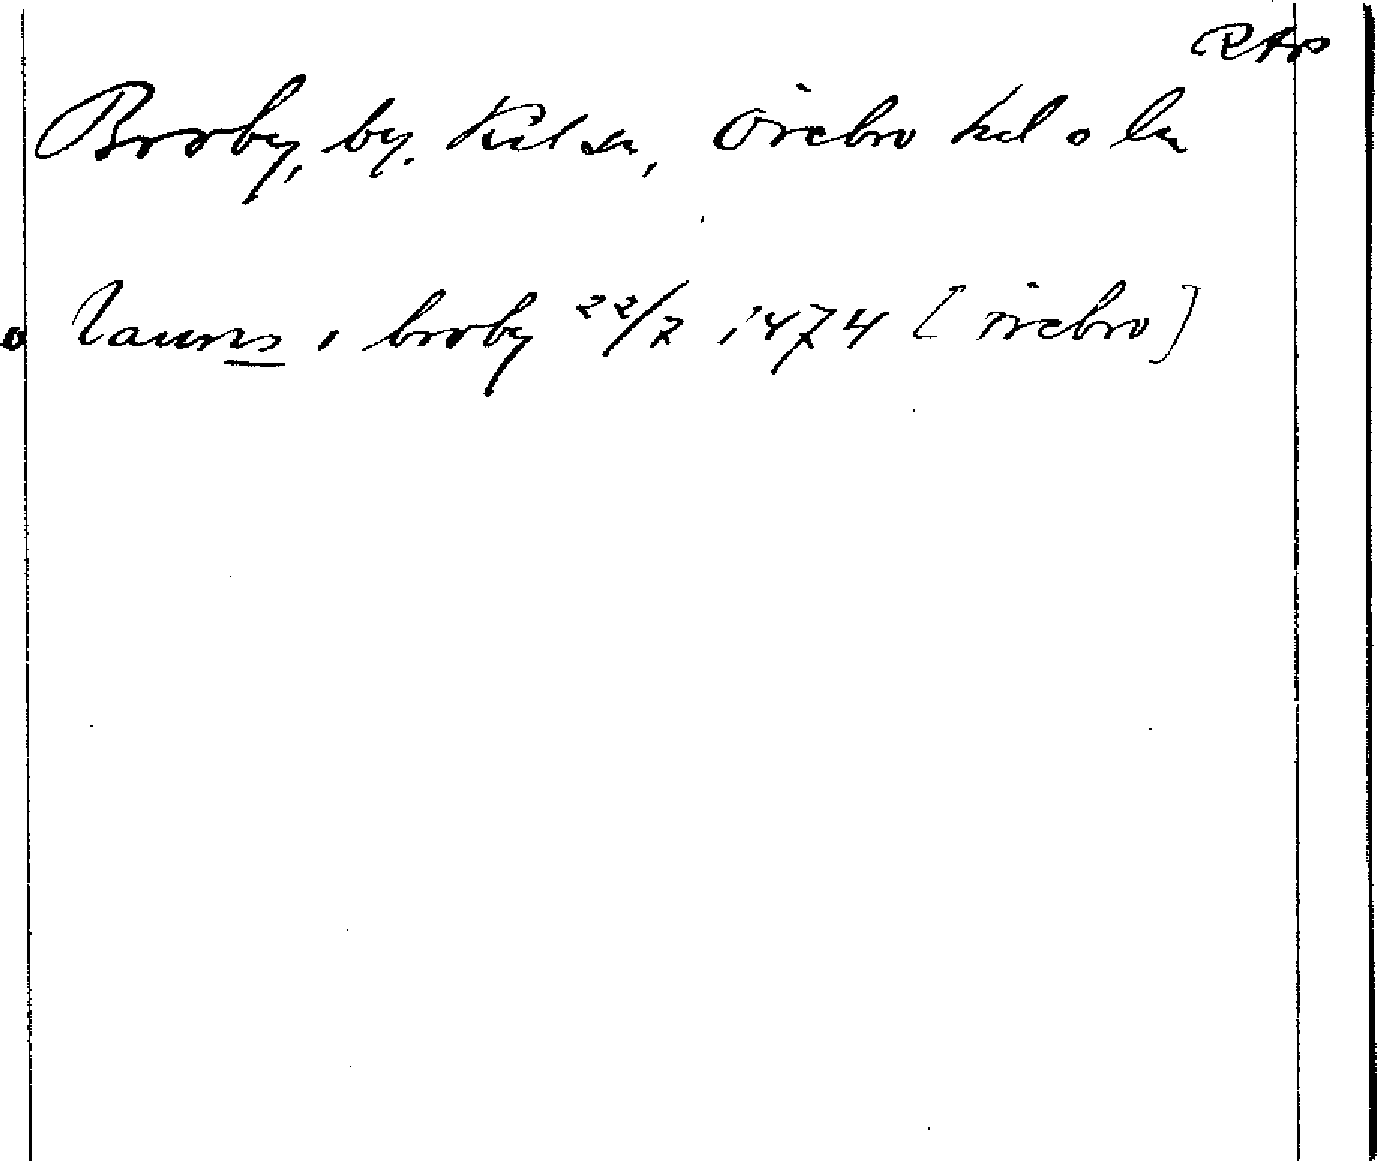 RAp
Broby, by. Kil sn, Örebro hd o ln
laurns i broby 22/7 1474 [Örebro]